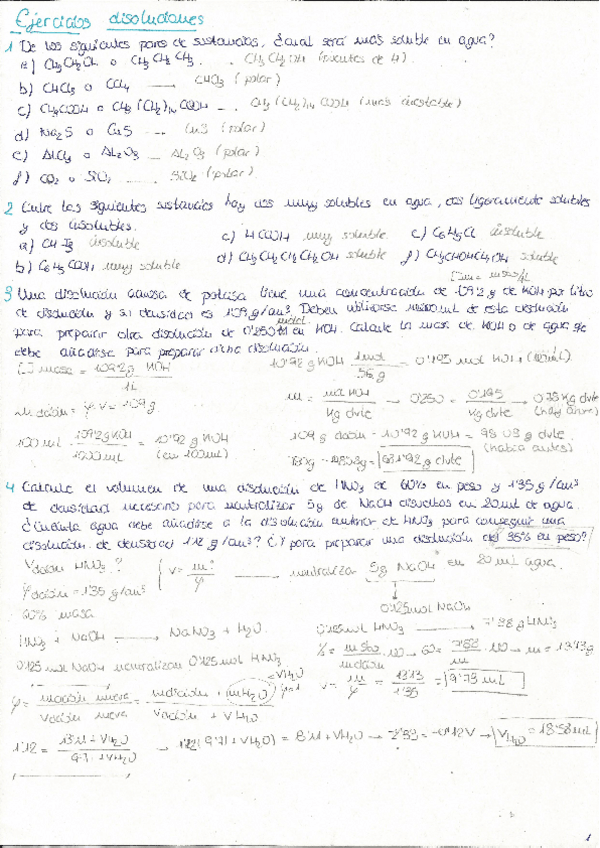 Ejercicios disoluciones
1 De los siguientes pares de sustancias, ¿cual será más soluble en agua?
a) CH3CH2OH o CH3CH2CH3 . . . CH3CH2OH (puentes de H)
b) CHCl3 o CCl4 CHCl3 (polar)
c) CH3COOH o CH3(CH2)14COOH CH3(CH2)14COOH (más insoluble)
d) Na2S o CuS CuS (polar)
e) AlCl3 o Al2O3 Al2O3 (polar)
f) CO2 o SiO2 SiO2 (polar)
2 Entre las siguientes sustancias hay dos muy solubles en agua, dos ligeramente solubles
y dos insolubles.
a) insoluble c) HCOOH muy soluble e) C6H5Cl insoluble
b) C6H5COOH muy soluble d) CH3CH2CH2CH2OH soluble f) CH3CHOHCH2OH soluble
3 Una disolución acuosa de potasa tiene una concentración de 109'2 g de KOH por litro
de disolución y su densidad es 1'09 g/cm3. Deben utilizarse 100 mL de esta disolución
para preparar otra disolución de 0'250 molal en KOH. Calcule la masa de KOH o de agua que
debe añadirse para preparar dicha disolución.
[] masa = 109'2g KOH / 1L 10'92 g KOH 1mol / 56 g = 0'195 mol KOH (100mL)
m disón = ρ·V = 109 g m = mol KOH / Kg dvte → 0'250 = 0'195 / Kg dvte → 0'78 Kg dvte (hay ahora)
100 mL · 109'2g KOH / 1000 mL = 10'92 g KOH (en 100mL) 109 g disón - 10'92 g KOH = 98'08 g dvte (había antes)
780g - 98'08g = 681'92 g dvte
4 Calcule el volumen de una disolución de HNO3 de 60% en peso y 1'35 g/cm3
de densidad necesario para neutralizar 5g de NaOH disueltos en 20 mL de agua.
¿Cuánta agua debe añadirse a la disolución anterior de HNO3 para conseguir una
disolución de densidad 1'12 g/cm3? ¿Y para preparar una disolución del 35% en peso?
Vdisón HNO3? V = m / ρ neutralizar 5g NaOH en 20 mL agua.
ρ disón = 1'35 g/cm3
0'125mol NaOH
60% masa
HNO3 + NaOH → NaNO3 + H2O. 0'125mol HNO3 → 7'88 g HNO3
0'125 mol NaOH neutralizan 0'125 mol HNO3 % = msto / mdisón · 100 → 60 = 7'88 / m · 100 → m = 13'13g
V = m / ρ = 13'13 / 1'35 = 9'73 mL
ρ = mdisón nueva / Vdisón nueva = mdisón + mH2O / Vdisón + VH2O
1'12 = 13'11 + VH2O / 9'71 + VH2O → 1'12(9'71 + VH2O) = 13'11 + VH2O → = -0'12V → VH2O = 18'58 mL
1